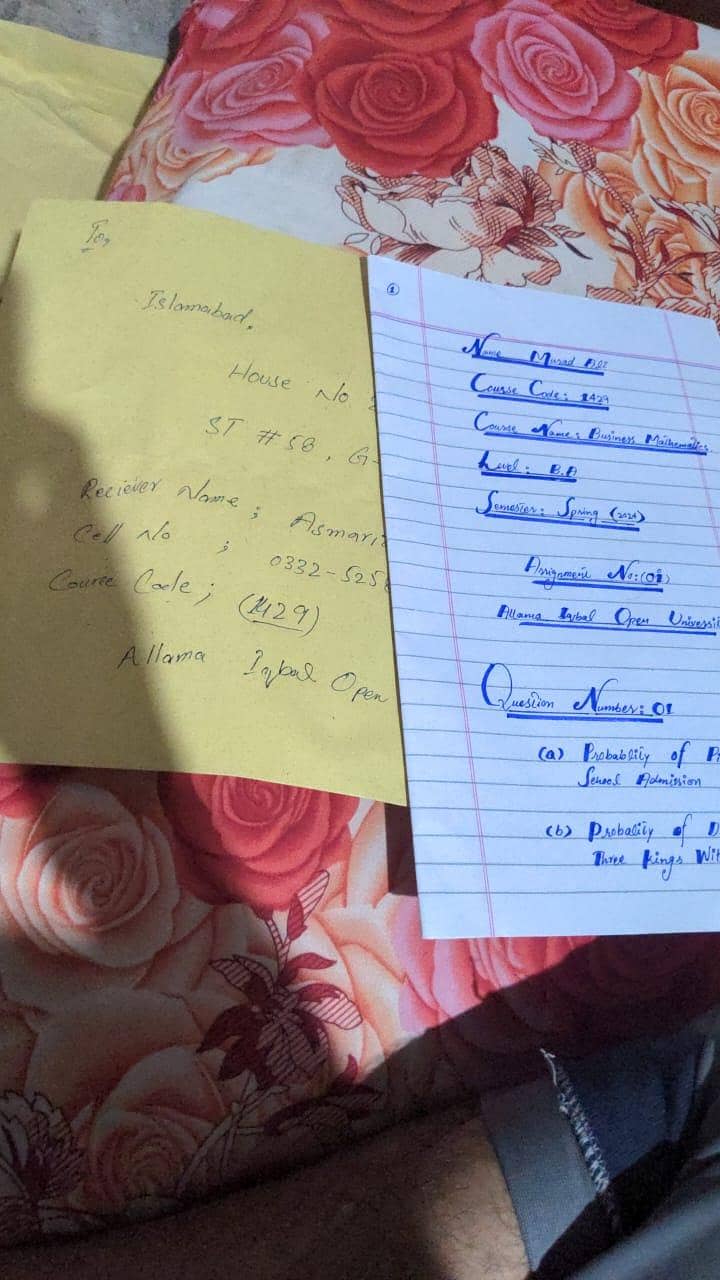 To,
Islamabad,
House No
ST # 58, G-
Reciever Name ;
Cell No ; 0332-525
Cource Code; (1429)
Allama Iqbal Open
①
Name Murad Ali
Course Code: 1429
Course Name: Business Mathematics
Level: B.A
Semester: Spring (2024)
Assignment No:(01)
Allama Iqbal Open Universi
Question Number: 01
(a) Probablity of
School Admission
(b) Probality of
Three kings Wit